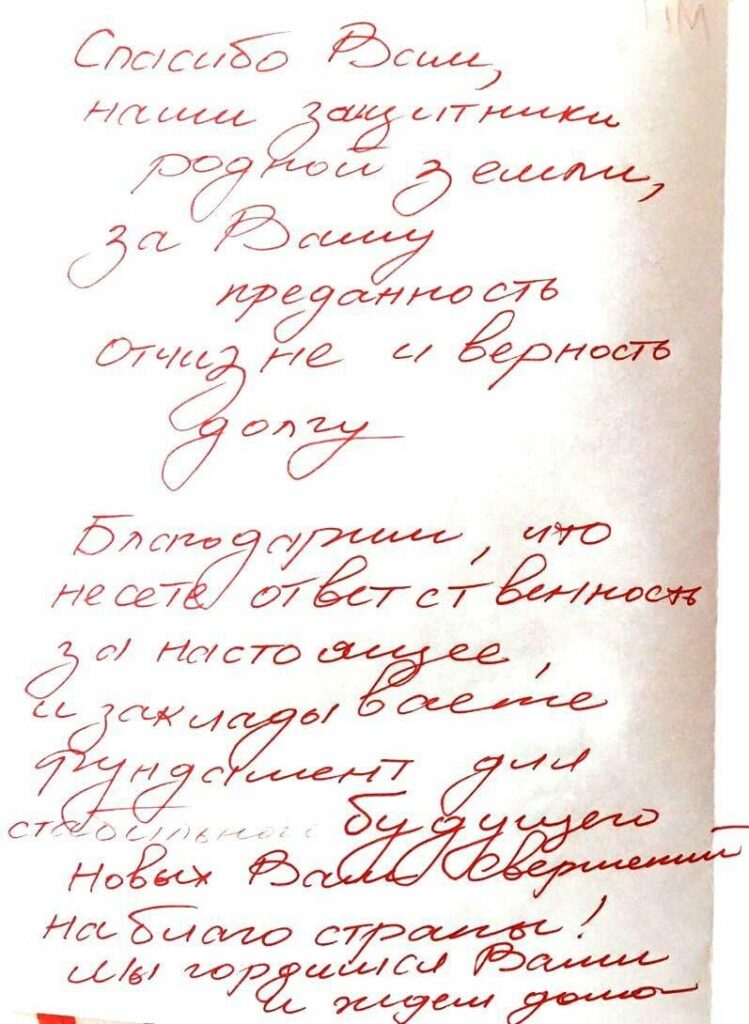 Спасибо Вам,
наши защитники
родной земли,
за Вашу
преданность
отчизне и верность
долгу
Благодарим, что
несете ответственность
за настоящее,
и закладываете
фундамент для
стабильного будущего
новых Вам свершений
на благо страны!
мы гордимся Вами
и ждем дома